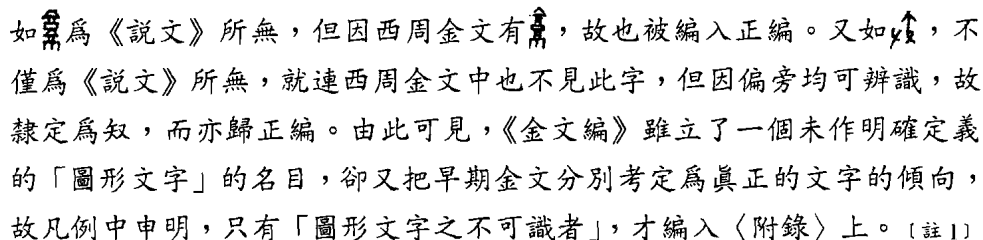 如爲《説文》所無，但因西周金文有，故也被編入正編。又如，不
僅爲《説文》所無，就連西周金文中也不見此字，但因偏旁均可辨識，故
隸定爲㚢，而亦歸正編。由此可見，《金文編》雖立了一個未作明確定義
的「圖形文字」的名目，卻又把早期金文分別考定爲眞正的文字的傾向，
故凡例中申明，只有「圖形文字之不可識者」，才編入〈附錄〉上。〔註1〕